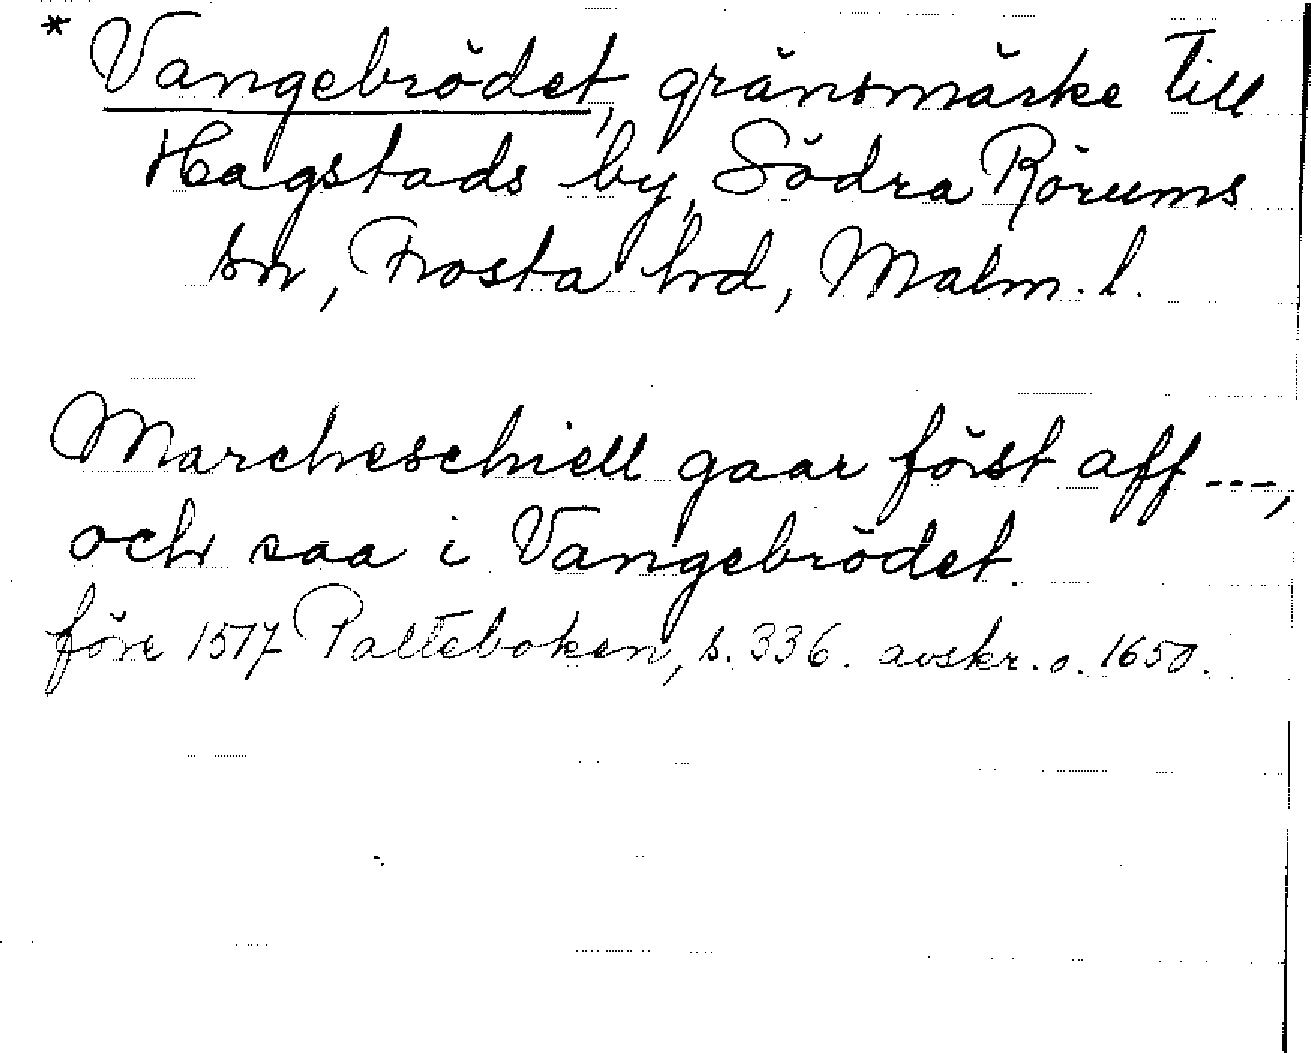 * Vangebrödet, gränsmärke till
Hagstads by, Södra Rörums
sn, Frosta hrd, Malm. l.
Marcheschiell gaar först aff ---,
och saa i Vangebrödet.
före 1517 Palteboken, s. 336. avskr. o. 1650.